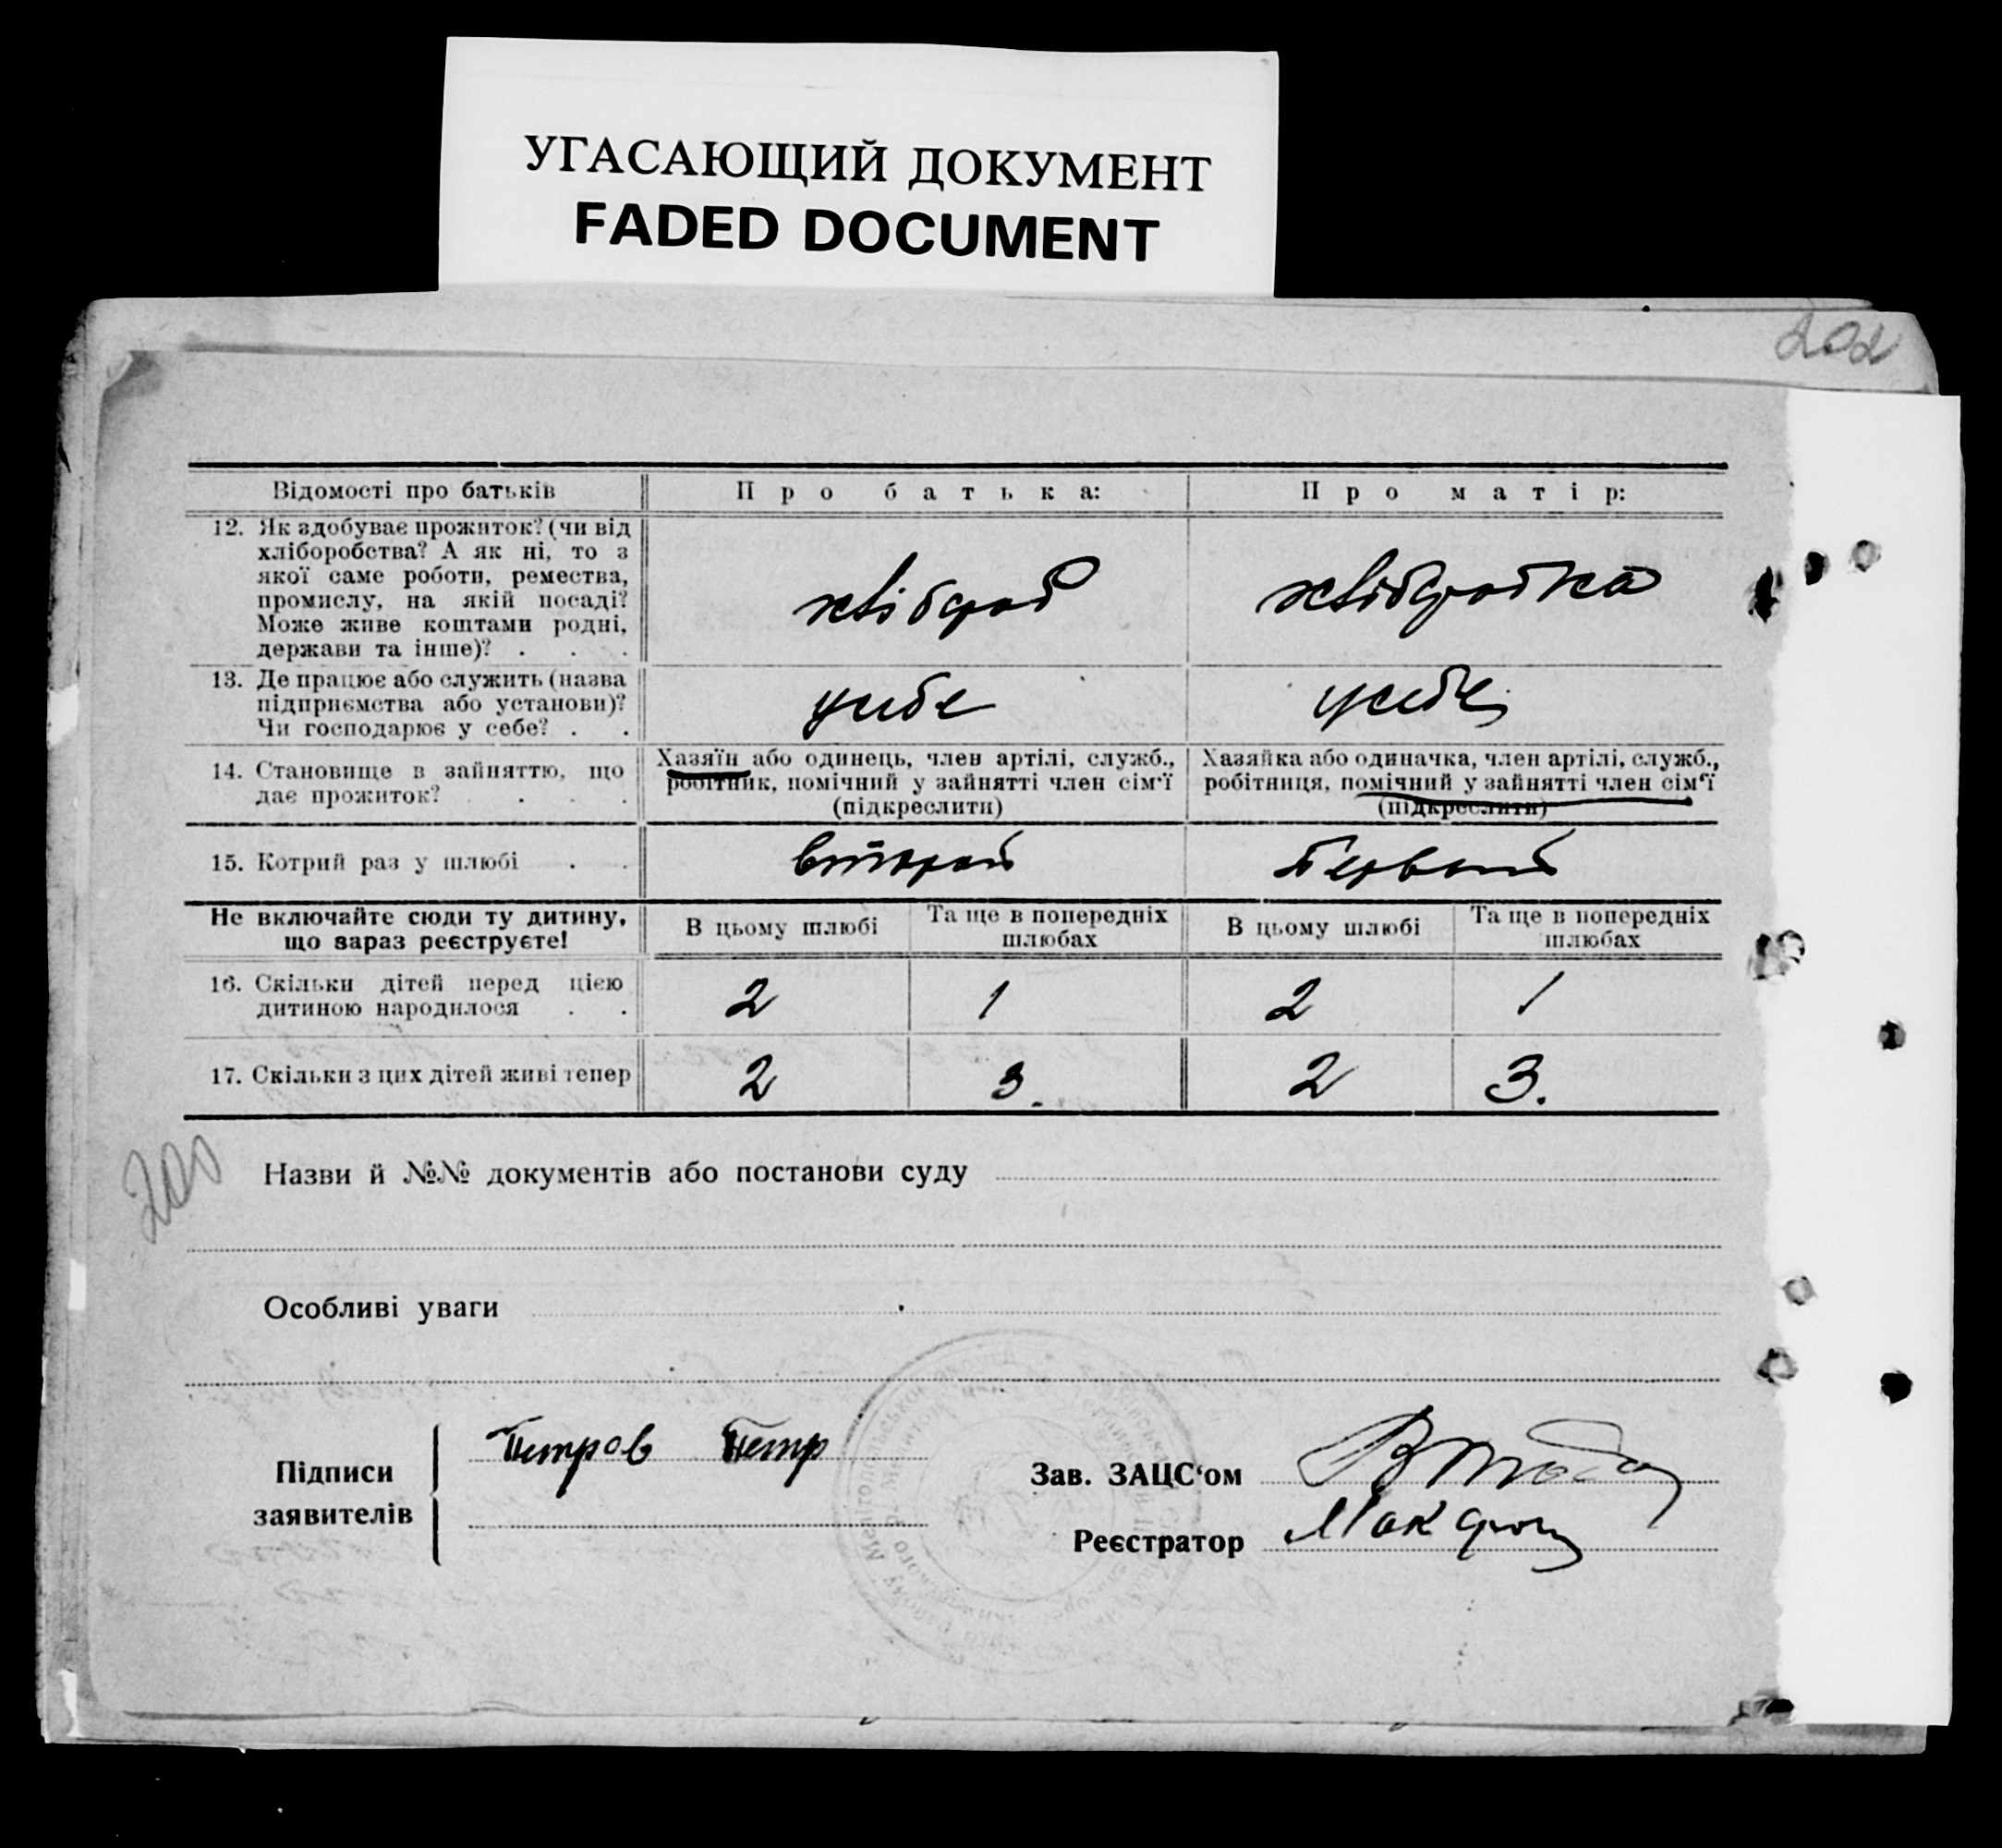 УГАСАЮЩИЙ ДОКУМЕНТ
FADED DOCUMENT
202
Відомості про батьків
Про батька:
Про матір:
12. Як здобуває прожиток? (чи від
хліборобства? А як ні, то з
якої саме роботи, ремества,
промислу, на якій посаді?
Може живе коштами родні,
держави та інше)? . . .
хлібороб
хліборобка
13. Де працює або служить (назва
підприємства або установи)?
Чи господарює у себе? . .
у себе
у себе
14. Становище в зайняттю, що
дає прожиток? . . . .
Хазяїн або одинець, член артілі, служб.,
робітник, помічний у зайнятті член сім'ї
(підкреслити)
Хазяйка або одиначка, член артілі, служб.,
робітниця, помічний у зайнятті член сім'ї
(підкреслити)
15. Котрий раз у шлюбі . .
второй
первый
Не включайте сюди ту дитину,
що зараз реєструєте!
В цьому шлюбі
Та ще в попередніх
шлюбах
В цьому шлюбі
Та ще в попередніх
шлюбах
16. Скільки дітей перед цією
дитиною народилося . .
2
1
2
1
17. Скільки з цих дітей живі тепер
2
3.
2
3.
200
Назви й №№ документів або постанови суду
Особливі уваги
Підписи
заявителів
Петров Петр
Зав. ЗАЦС'ом
Реєстратор